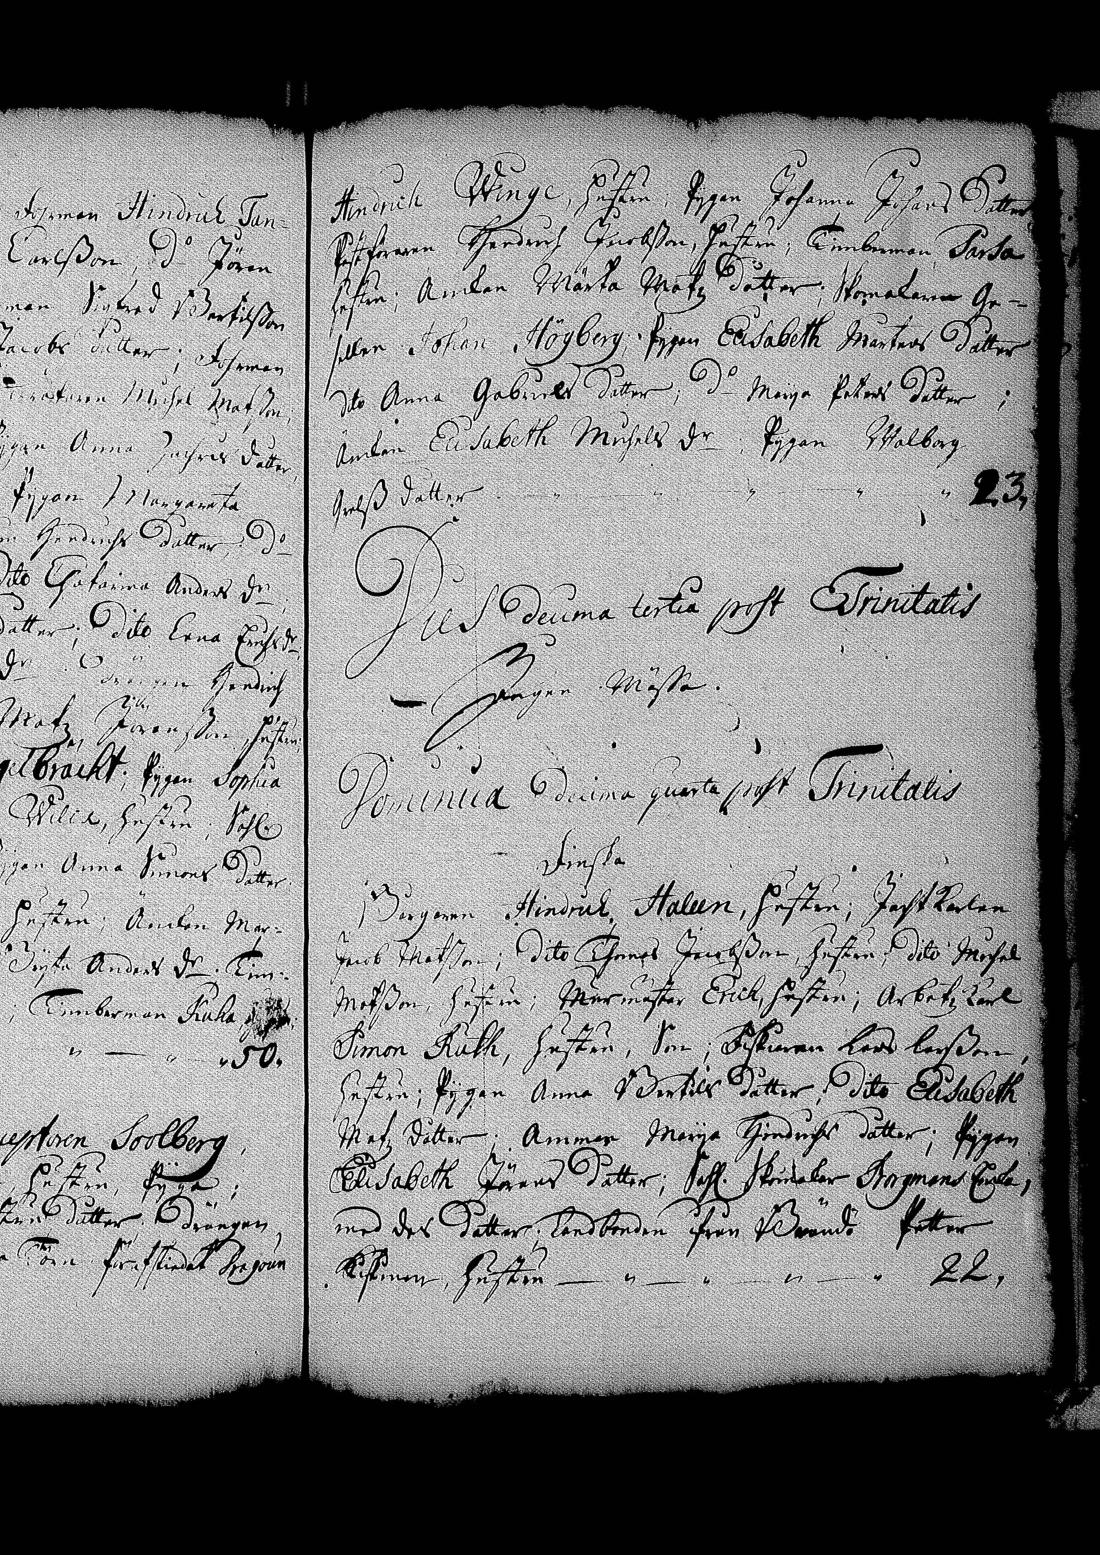 Fohrman Hindrich Tan-
Carlßon, do Jören
man Sigfred Bertilsson
Jacobs Dutter; Fohrman
Michel Matsson,
Pygan Anna Zachris dutter,
Pygan Margareta
Hendrichs dutter, do
Dito Chatarina Anders dr,
datter; dito Lena Erichs dr,
dr Drängen Hendrich
Matz Jöransson, hustru;
gelbracht; Pygan Sophia
Willa, hustru; Sahl.
Pygan Anna Simons Datter
hustru; Ankan Mar-
Anders dr. Tim-
Timberman Kuha
50.
Soolberg,
hustru, Pyga;
datter, Drängen
Törn förafskiedat Dragoun
Hindrich Winge, hustru, Pygan Johanna Johans Datter
Hendrich Jacobsson, hustru; Timberman Parsa
hustru; Ankan Märta Matz dutter; Skomakare Ge-
sellen Johan Högberg; Pygan Elisabeth Martens Datter
dito Anna Gabriels datter; do Maija Peters dutter;
Ankan Elisabeth Michels dr; Pygan Walborg
Grelß dutter 23,
Dies decima tertia post Trinitatis
Ingen Mässa.
Dominica decima quarta post Trinitatis
Finska
Borgaren Hindrich Haleen, hustru; Jachtkarlen
Jacob Matsson; dito Thomas Jacobsson, hustru; dito Michel
Matsson, hustru; Murmester Erich, hustru; Arbetz Karl
Simon Rath, hustru, Son; Fiskaren Lars Larßon,
hustru; Pygan Anna Bertils datter; dito Elisabeth
Matz dutter; Amman Maija Hindrichs dutter; Pygan
Elisabeth Jörans Datter; Sahl. Skomaker Borgmans Enka,
med des Datter; Landbonden fran Brändö Petter
hustru 22,